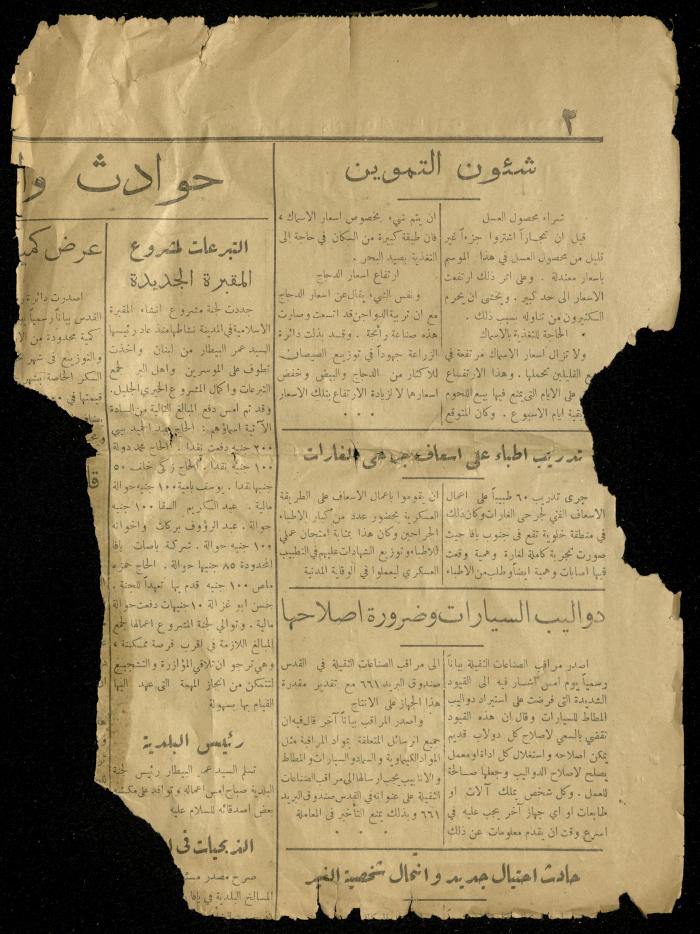 ٣
شئون التموين
شراء محصول العسل
قيل ان تجاراً اشتروا جزءاً غير
قليل من محصول العسل في هذا الموسم
باسعار معتدلة . وعلى اثر ذلك ارتفعت
الاسعار الى حد كبير . ويخشى ان يحرم
الكثيرون من تناوله بسبب ذلك .
الحاجة للتغذية بالاسماك
ولا تزال اسعار الاسماك مرتفعة في
القليلين تحملها . وهذا الارتفاع
على الايام التي تمنع فيها بيع اللحوم
بقية ايام الاسبوع . وكان المتوقع
ان يتم شيء بخصوص اسعار الاسماك ،
فان طبقة كبيرة من السكان في حاجة الى
التغذية بصيد البحر .
ارتفاع اسعار الدجاج
ونفس الشيء يقال عن اسعار الدجاج
مع ان تربية الدواجن قد اتسعت وصارت
هذه صناعة رائجة . وقد بذلت دائرة
الزراعة جهوداً في توزيع الصيصان
للاكثار من الدجاج والبيض وخفض
اسعارها لا لزيادة الارتفاع بتلك الاسعار
تدريب اطباء على اسعاف جرحى الغارات
جرى تدريب ٦٠ طبيباً على اعمال
الاسعاف الفني لجرحى الغارات وكان ذلك
في منطقة خلوية تقع في جنوب يافا حيث
صورت تجربة كاملة لغارة وهمية وقعت
فيها اصابات وهمية ايضاً وطلب من الاطباء
ان يقوموا باعمال الاسعاف على الطريقة
العسكرية بحضور عدد من كبار الاطباء
الجراحين وكان هذا بمثابة امتحان عملي
للاطباء وتوزيع الشهادات عليهم في التطبيب
العسكري ليعملوا في الوقاية المدنية
دواليب السيارات وضرورة اصلاحها
اصدر مراقب الصناعات الثقيلة بياناً
رسمياً يوم امس اشار فيه الى القيود
الشديدة التى فرضت على استيراد دواليب
المطاط للسيارات وقال ان هذه القيود
تقضي بالسعي لاصلاح كل دولاب قديم
يمكن اصلاحه واستغلال كل اداة او معمل
يصلح لاصلاح الدواليب وجعلها صالحة
للعمل . وكل شخص يملك آلات او
طابعات او اي جهاز آخر يجب عليه في
اسرع وقت ان يقدم معلومات عن ذلك
الى مراقب الصناعات الثقيلة في القدس
صندوق البريد ٦٦١ مع تقدير مقدرة
هذا الجهاز على الانتاج
واصدر المراقب بياناً آخر قال فيه ان
جميع الرسائل المتعلقة بمواد المراقبة مثل
المواد الكيماوية والسماد والسيارات والمطاط
والانابيب يجب ارسالها الى مراقب الصناعات
الثقيلة على عنوانه في القدس صندوق البريد
٦٦١ وبذلك يمنع التأخير في المعاملة
حادث احتيال جديد وانتحال شخصية الغير
حوادث وا
التبرعات لمشروع
المقبرة الجديدة
جددت لجنة مشروع انشاء المقبرة
الاسلامية في المدينة نشاطها منذ عاد رئيسها
السيد عمر البيطار من لبنان واخذت
تطوف على الموسرين واهل البر لجمع
التبرعات واكمال المشروع الخيري الجليل .
وقد تم امس دفع المبالغ التالية من السادة
الآتية اسماؤهم : الحاج عبد الحميد بيبي
٢٠٠ جنيه دفعت نقدا . الحاج محمد دولة
١٠٠ جنيه نقدا . الحاج زكي خلف ٥٠
جنيها نقدا . يوسف بامية ١٠٠ جنيه حوالة
مالية . عبد الكريم السقا ١٠٠ جنيه
حوالة . عبد الرؤوف بركات واخوانه
١٠٠ جنيه حوالة . شركة باصات يافا
المحدودة ٨٥ جنيها حوالة . الحاج حمزه
ماص ١٠٠ جنيه قدم بها تعهداً للجنة .
حسن ابو غزالة ١٠ جنيهات دفعت حوالة
مالية . وتوالي لجنة المشروع اعمالها لجمع
المبالغ اللازمة في اقرب فرصة ممكنة ،
وهي ترجو ان تلاقي المؤازرة والتشجيع
لتتمكن من انجاز المهمة التى عهد اليها
القيام بها بسهولة
رئيس البلدية
تسلم السيد عمر البيطار رئيس لجنة
البلدية صباح امس اعماله وتوافد على مكتبه
بعض اصدقائه للسلام عليه
الذبحيات في
صرح مصدر
المسالخ البلدية في يافا
عرض كمية
اصدرت دائرة
القدس بياناً رسمياً
كمية محدودة من
والتوزيع في شهر
السكر الخاصة بشهر
قيمتها في